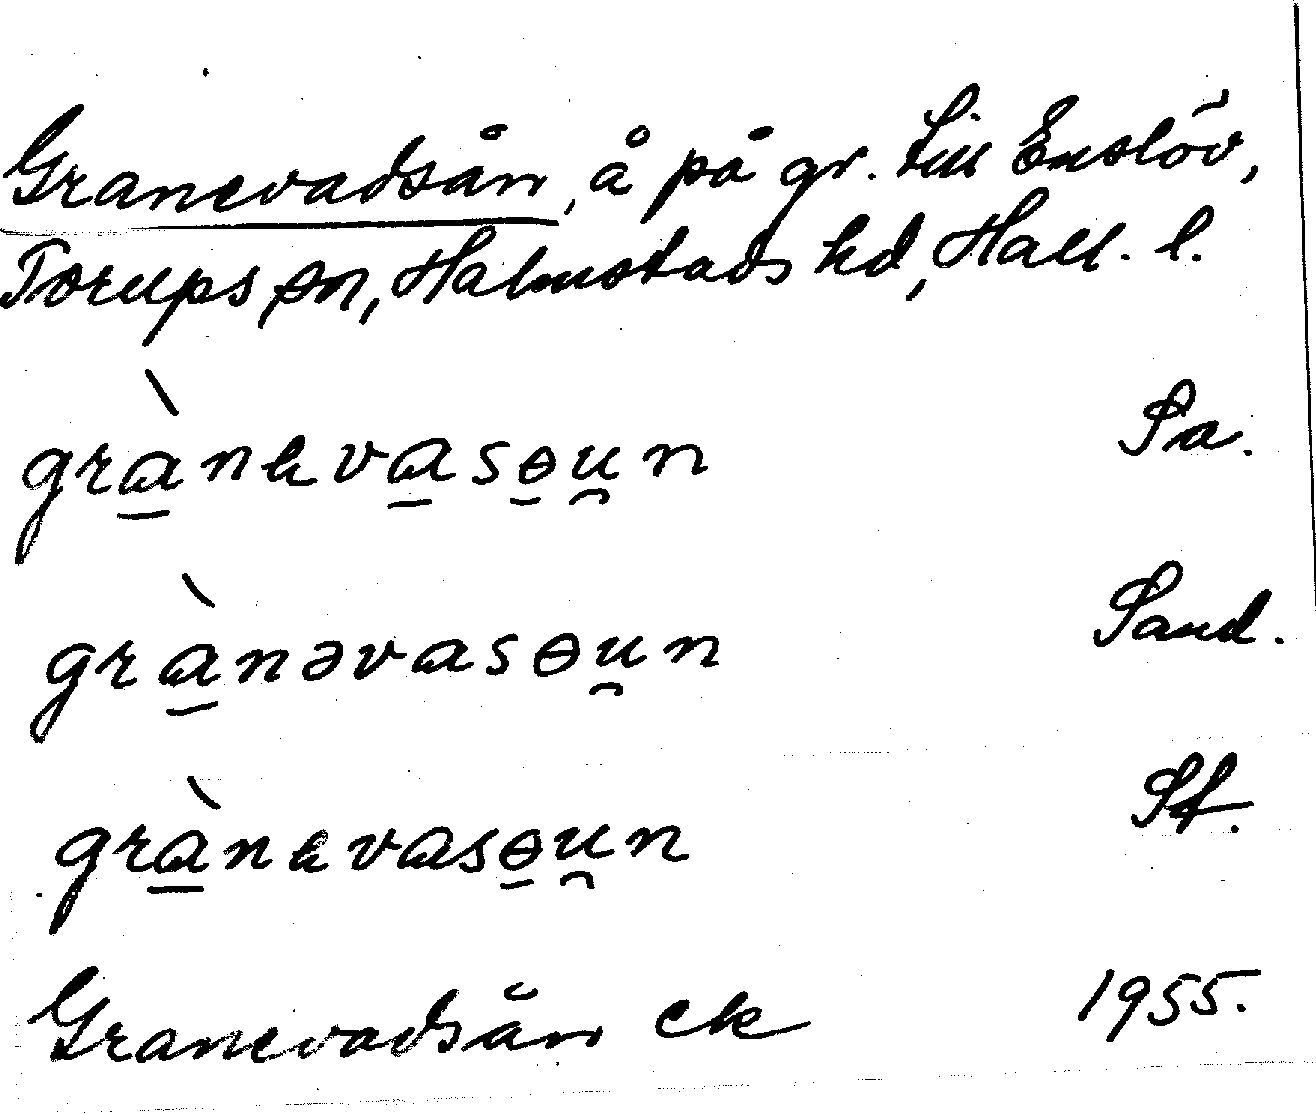 Granevadsån, å på gr. till Enslöv,
Torups sn, Halmstads hd, Hall. l.
grànɛvasɵu̯n Sa.
grànəvasɵu̯n Sand.
grànɛvasɵu̯n Sf.
Granevadsån ek 1955.